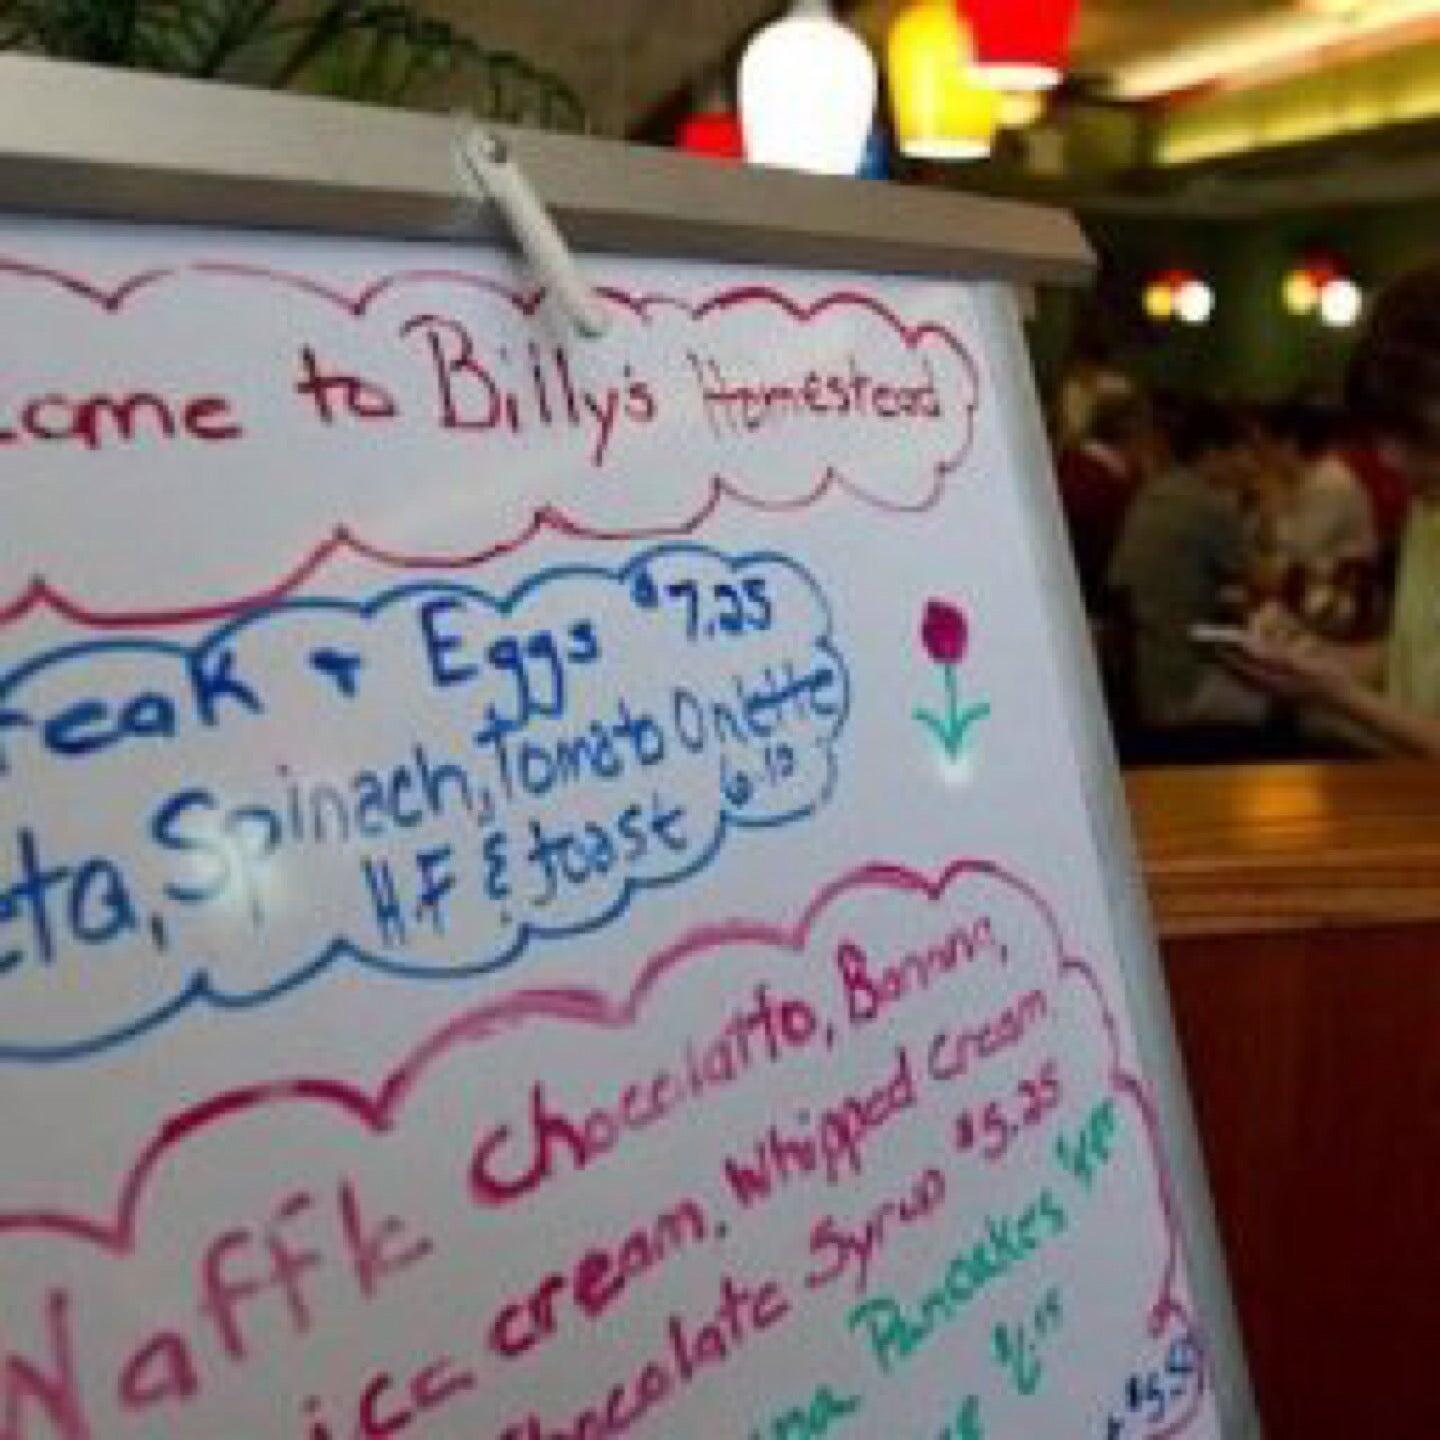 come to Billy's Homestead
teak & Eggs $7.25
eta, Spinach, Tomato Omlette
H.F & toast 6.10
Waffle Choccolatto, Banana,
ice cream, Whipped Cream
Chocolate Syrup $5.25
Pancakes